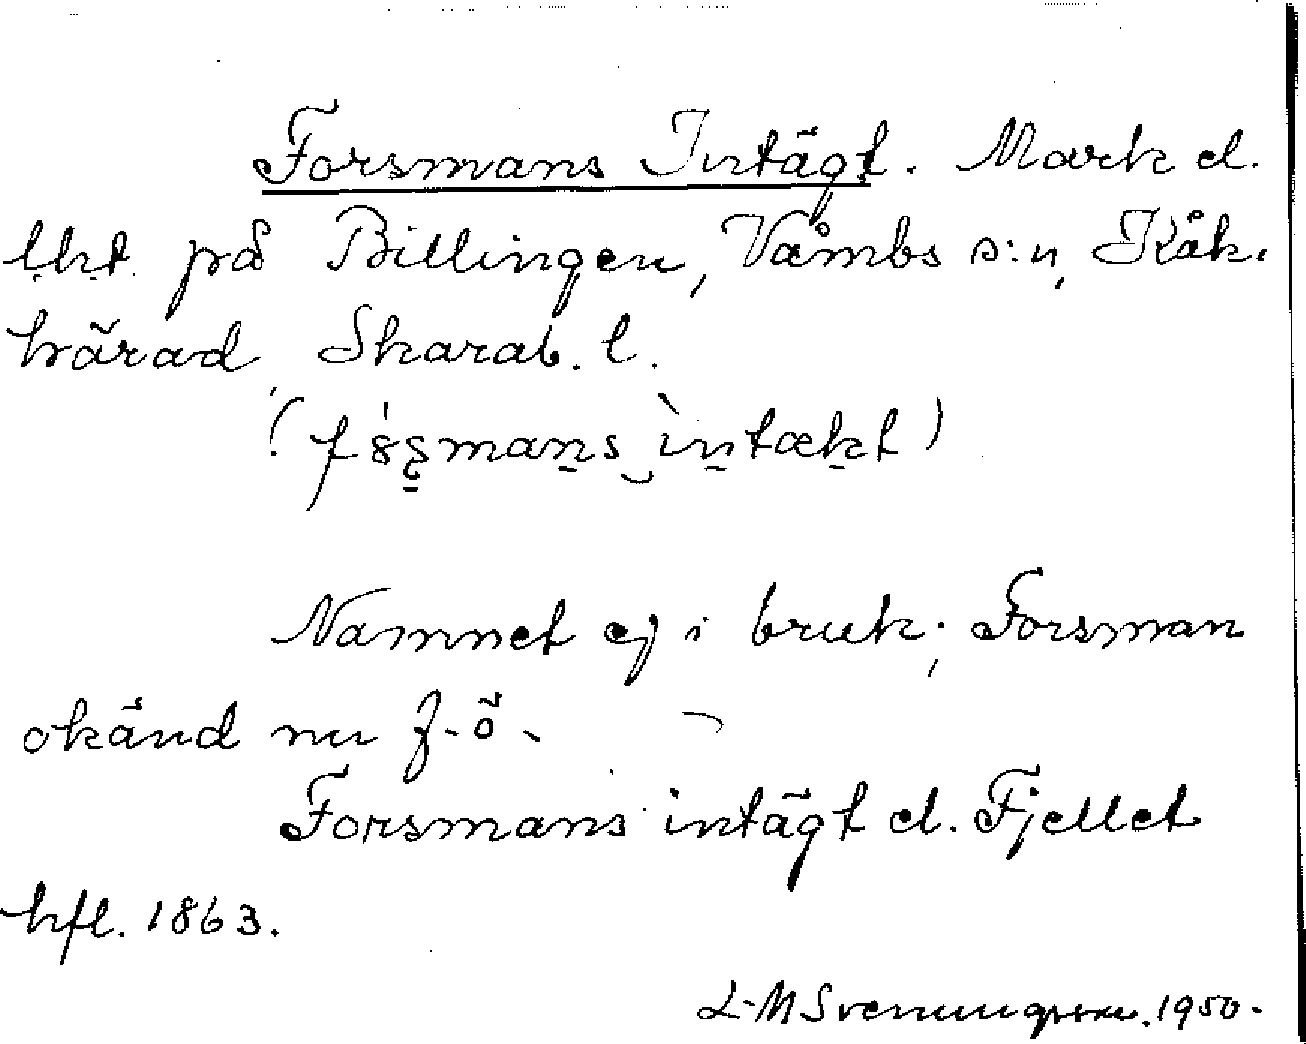 Forsmans Intägt. Mark el.
lht. på Billingen, Våmbs s:n, Kåk.
härad, Skarab. l.
Namnet ej i bruk; Forsman
okänd nu f. ö.
Forsmans intägt el. Fjellet
hfl. 1863.
L-M Svenungsson. 1950.